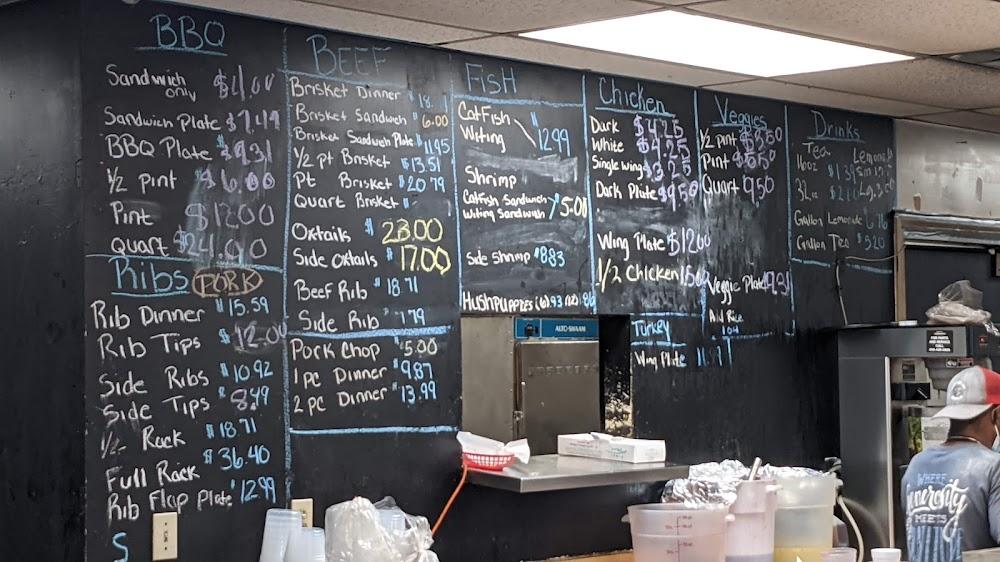 BBQ
Sandwich only
Sandwich Plate $7.49
BBQ Plate $9.31
1/2 pint $6.00
Pint $12.00
Quart $24.00
Ribs PORK
Rib Dinner $15.59
Rib Tips $12.00
Side Ribs $10.92
Side Tips $8.49
1/2 Rack $18.71
Full Rack $36.40
Rib Flap Plate $12.99
S
BEEF
Brisket Dinner $18.
Brisket Sandwich 6.00
Brisket Sandwich Plate $11.95
1/2 pt Brisket $13.51
Pt Brisket $20.79
Quart Brisket $
Oxtails $23.00
Side Oxtails $17.00
Beef Rib $18.71
Side Rib
Pork Chop $5.00
1 pc Dinner $9.87
2 pc Dinner $13.99
FisH
CatFish
Witing $12.99
Shrimp
Catfish Sandwich
Witing Sandwich 5.00
Side Shrimp $8.83
HUSHPUPPIES (6) .93 (12)
ALTO-SHAAM
Chicken
Dark $4.25
White $4.25
Single wing $3.25
Dark Plate $9.50
Wing Plate $12.00
1/2 Chicken
Turkey
Wing Plate
Veggies
1/2 pint
Pint
Quart 9.50
Veggie Plate
Add Rice
Drinks
Tea
16oz
32oz
Gallon Lemonade
Gallon Tea $5.20
WHERE
Generosity
MEETS